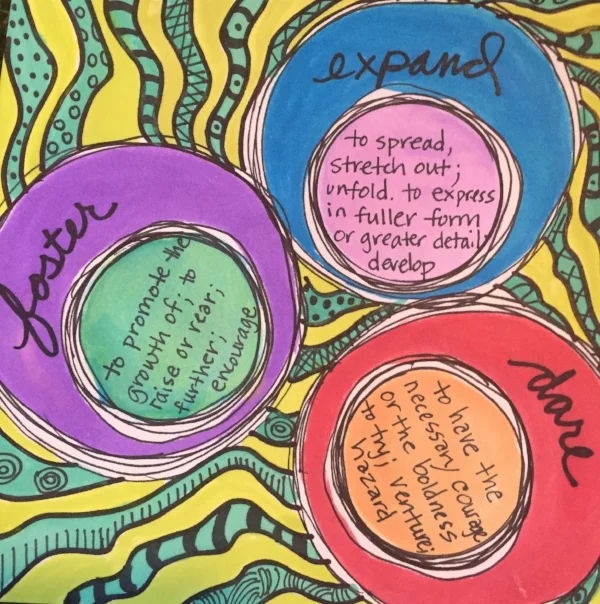 expand
to spread,
stretch out;
unfold. to express
in fuller form
or greater detail
develop
foster
to promote the
growth of; to
raise or rear;
further;
encourage
dare
to have the
necessary courage
or the boldness
to try; venture;
hazard